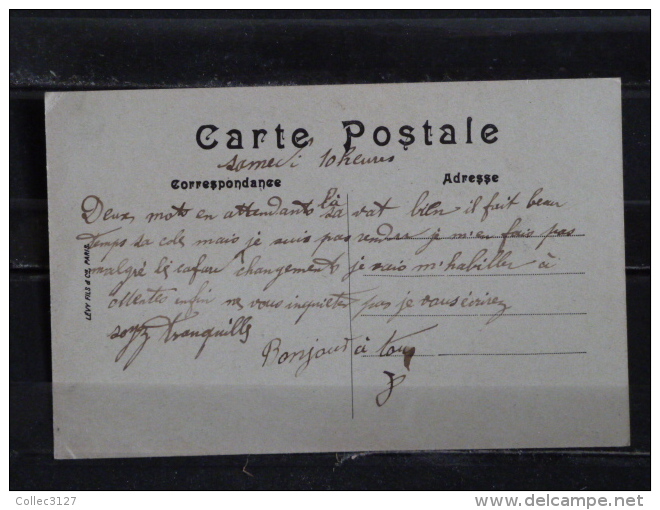 Carte Postale
samedi 10 heures
Correspondance
Adresse
Deux mots en attendant la sa vat bien il fait beau
temps sa cole mais je suis pas rendu je m'en fais pas
malgré le cafard changement je vais m'habiller à
enfin ne vous inquieter pas je vous écrirez
soyez tranquille
Bonjour à tous
LÉVY FILS & Cie, PARIS
Collec3127
www.delcampe.net